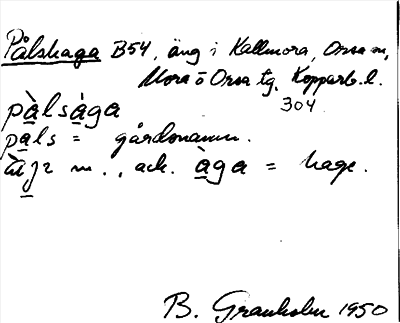 Pålshaga B54, äng i Kallmora, Orsa sn,
Mora o Orsa tg. Kopparb. l.
304
pàlsàga
pals = gårdsnamn.
m., ack. àga = hage.
B. Granholm 1950